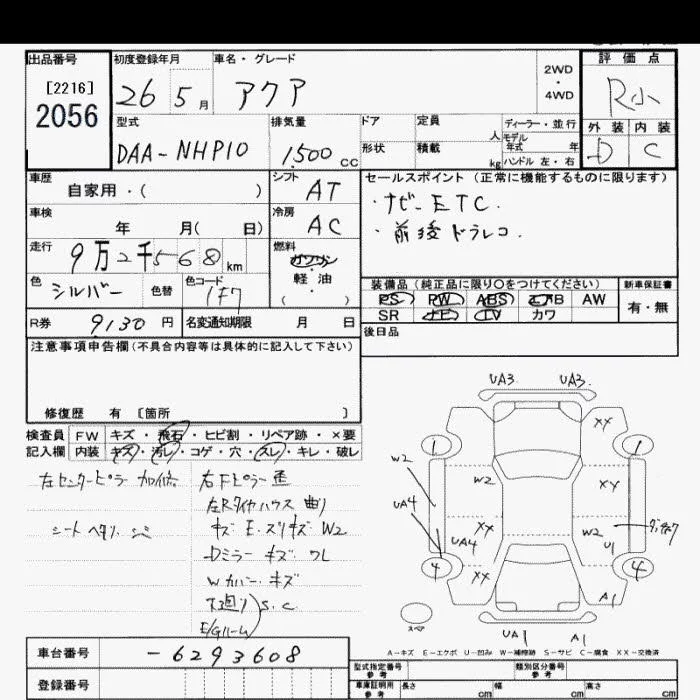 出品番号
[2216]
2056
初度登録年月
26 5 月
車名・グレード
アクア
2WD
・
4WD
評価点
R小
外装 内装
D C
型式
DAA-NHP10
排気量
1,500 cc
ドア
形状
定員
人
積載
kg
ディーラー・並行
モデル
年式 年
ハンドル 左・右
車歴
自家用・( )
シフト
AT
セールスポイント (正常に機能するものに限ります)
・ナビ-ETC.
・前後ドラレコ.
車検
年 月( 日)
冷房
AC
走行
9万2千568 km
燃料
ガソリン
・
軽油
( ・ )
色
シルバー
色替
色コード
1F7
装備品 (純正品に限り○をつけてください)
PS PW ABS エアB AW
SR ナビ TV カワ
新車保証書
有・無
R券
9,130 円
名変通知期限 月 日
後日品
注意事項申告欄(不具合内容等は具体的に記入して下さい)
修復歴 有 [箇所 ]
検査員
記入欄
FW キズ・飛石・ヒビ割・リペア跡・×要
内装 キズ・汚レ・コゲ・穴・スレ・キレ・破レ
左センターピラー 加修
シートヘタリ. シミ
右Fピラー歪
左Rタイヤハウス曲り
キズ E.スリキズ W2
Dミラーキズ ワレ
Wカバー.キズ
下廻り
E/Gルーム
S.C
UA3 UA3.
XX
1 1
W2
W2
XY
UA4
XX
UA4
W2
U1
4 4
XX
A1
スペア
UA1 A1
A-キズ E-エクボ U-凹み W-補修跡 S-サビ C-腐食 XX-交換済
車台番号
-6293608
登録番号
型式指定番号
参考
類別区分番号
参考
車庫証明用
参考
長さ cm
幅 cm
高さ cm